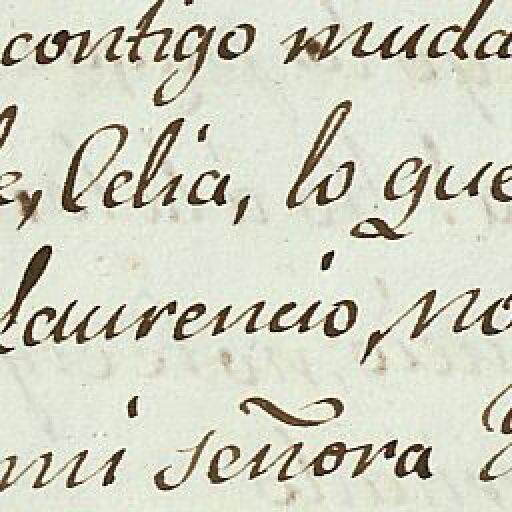 contigo muda
e, Celia, lo que
Laurencio, no
mi señora